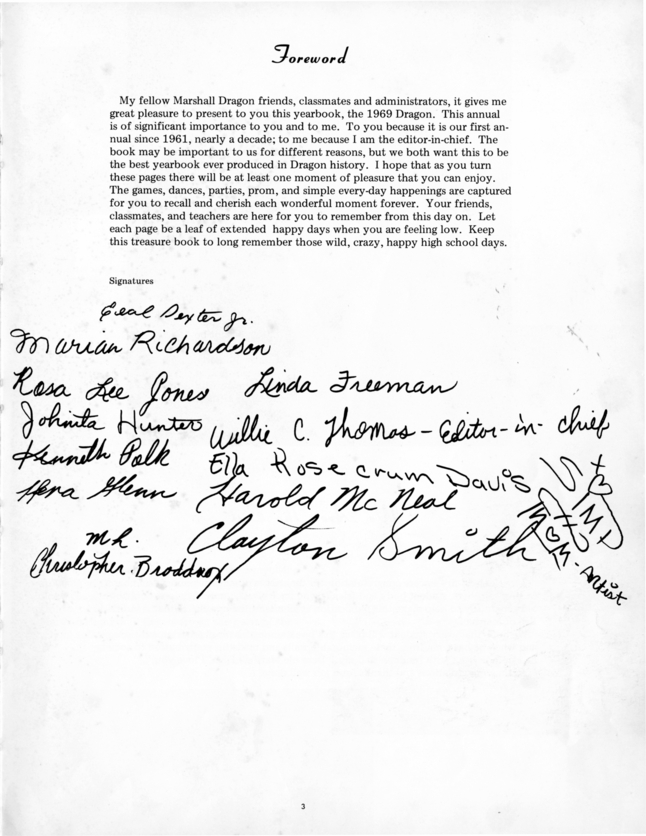 Foreword
My fellow Marshall Dragon friends, classmates and administrators, it gives me
great pleasure to present to you this yearbook, the 1969 Dragon. This annual
is of significant importance to you and to me. To you because it is our first an-
nual since 1961, nearly a decade; to me because I am the editor-in-chief. The
book may be important to us for different reasons, but we both want this to be
the best yearbook ever produced in Dragon history. I hope that as you turn
these pages there will be at least one moment of pleasure that you can enjoy.
The games, dances, parties, prom, and simple every-day happenings are captured
for you to recall and cherish each wonderful moment forever. Your friends,
classmates, and teachers are here for you to remember from this day on. Let
each page be a leaf of extended happy days when you are feeling low. Keep
this treasure book to long remember those wild, crazy, happy high school days.
Signatures
Dexter Jr.
Marian Richardson
Rosa Lee Jones Linda Freeman
Johnita Hunter Willie C. Thomas - Editor-in-chief
Kenneth Polk Ella Rose Crum Davis
Glenn Harold Mc Neal
Clayton Smith
Mr. Christopher Broddnax
Artist
3